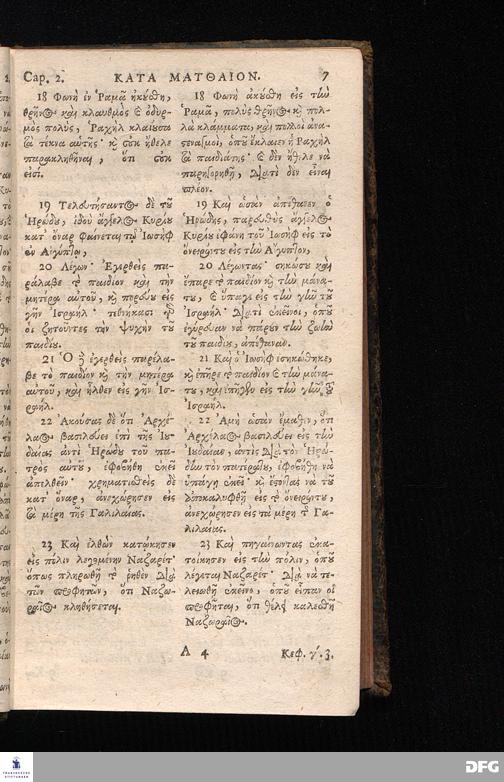 Cap. 2. ΚΑΤΑ ΜΑΤΘΑΙΟΝ. 7
18 Φωνὴ ἐν Ῥαμᾶ ἠκούσθη,
θρῆνος καὶ κλαυθμὸς καὶ ὀδυρ-
μὸς πολὺς, Ῥαχὴλ κλαίουσα
τὰ τέκνα αὑτῆς· καὶ οὐκ ἤθελε
παρακληθῆναι, ὅτι οὐκ
εἰσί.
19 Τελευτήσαντος δὲ τοῦ
Ἡρώδου, ἰδοὺ ἄγγελος Κυρίου
κατ' ὄναρ φαίνεται τῷ Ἰωσὴφ
ἐν Αἰγύπτῳ,
20 Λέγων· Ἐγερθεὶς πα-
ράλαβε τὸ παιδίον καὶ τὴν
μητέρα αὐτοῦ, καὶ πορεύου εἰς
γῆν Ἰσραήλ· τεθνήκασι γὰρ
οἱ ζητοῦντες τὴν ψυχὴν τοῦ
παιδίου.
21 Ὁ δὲ ἐγερθεὶς παρέλα-
βε τὸ παιδίον καὶ τὴν μητέρα
αὐτοῦ, καὶ ἦλθεν εἰς γῆν Ἰσ-
ραήλ.
22 Ἀκούσας δὲ ὅτι Ἀρχέ-
λαος βασιλεύει ἐπὶ τῆς Ἰου-
δαίας ἀντὶ Ἡρώδου τοῦ πα-
τρὸς αὑτοῦ, ἐφοβήθη ἐκεῖ
ἀπελθεῖν· χρηματισθεὶς δὲ
κατ' ὄναρ, ἀνεχώρησεν εἰς
τὰ μέρη τῆς Γαλιλαίας.
23 Καὶ ἐλθὼν κατῴκησεν
εἰς πόλιν λεγομένην Ναζαρέτ·
ὅπως πληρωθῇ τὸ ῥηθὲν διὰ
τῶν προφητῶν, ὅτι Ναζω-
ραῖος κληθήσεται.
18 Φωνὴ ἀκούσθη εἰς τὴν
Ῥαμᾶ, πολὺς θρῆνος καὶ πολ-
λὰ κλάμματα, καὶ πολλοὶ ἀνα-
στεναγμοὶ, ὁποῦ ἔκλαιεν ἡ Ῥαχὴλ
τὰ παιδιά της· καὶ δὲν ἤθελε νὰ
παρηγορηθῇ, διατὶ δὲν εἶναι
πλέον.
19 Καὶ ὡσὰν ἀπέθανεν ὁ
Ἡρώδης, παρευθὺς ἄγγελος
Κυρίου ἐφάνη τοῦ Ἰωσὴφ εἰς τὸ
ὄνειρόν του εἰς τὴν Αἴγυπτον,
20 Λέγωντας· σηκώσου καὶ
ἔπαρε τὸ παιδίον καὶ τὴν μάνα
του, καὶ ὕπαγε εἰς τὴν γῆν τοῦ
Ἰσραήλ· διατὶ ἐκεῖνοι, ὁποῦ
ἐγύρευαν νὰ πάρουν τὴν ζωὴν
τοῦ παιδίου, ἀπέθαναν.
21 Καὶ ὁ Ἰωσὴφ ἐσηκώθηκε,
καὶ ἐπῆρε τὸ παιδίον καὶ τὴν μάνα
του, καὶ ἐπῆγεν εἰς τὴν γῆν τοῦ
Ἰσραήλ.
22 Ἀμὴ ὡσὰν ἔμαθεν, ὅτι
Ἀρχέλαος βασιλεύει εἰς τὴν
Ἰουδαίαν, ἀντὶς διὰ τὸν Ἡρώ-
δην τὸν πατέρα του, ἐφοβήθη νὰ
ὑπάγῃ ἐκεῖ·
ἀποκαλυφθῇ εἰς τὸ ὄνειρόν του,
ἀνεχώρησεν εἰς τὰ μέρη τῆς Γα-
λιλαίας.
23 Καὶ πηγαίνωντας ἐκα-
τοίκησεν εἰς τὴν πόλιν, ὁποῦ
λέγεται Ναζαρέτ· διὰ νὰ τε-
λειωθῇ ἐκεῖνο, ὁποῦ εἶπαν οἱ
προφῆται, ὅτι θέλει καλεσθῆ
Ναζωραῖος.
A 4 Κεφ. γ΄. 3.
DFG